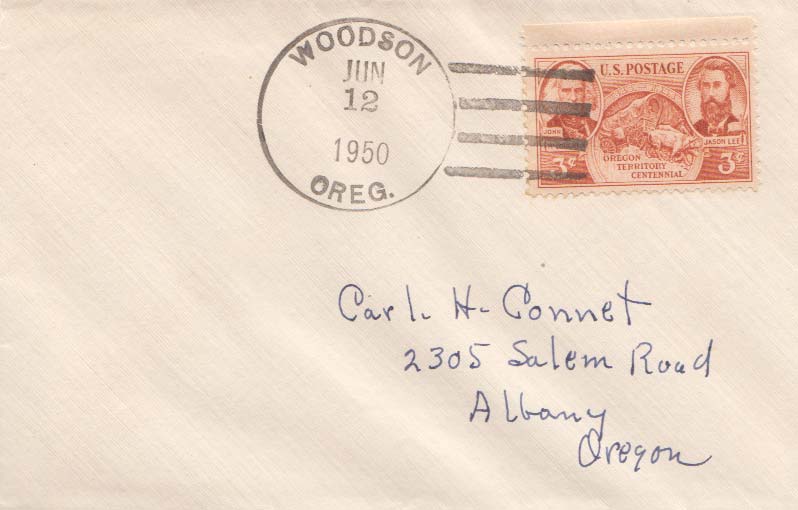 WOODSON
JUN
12
1950
OREG.
U.S. POSTAGE
JOHN
JASON LEE
OREGON
TERRITORY
CENTENNIAL
3¢
3¢
Carl. H. Connet
2305 Salem Road
Albany
Oregon